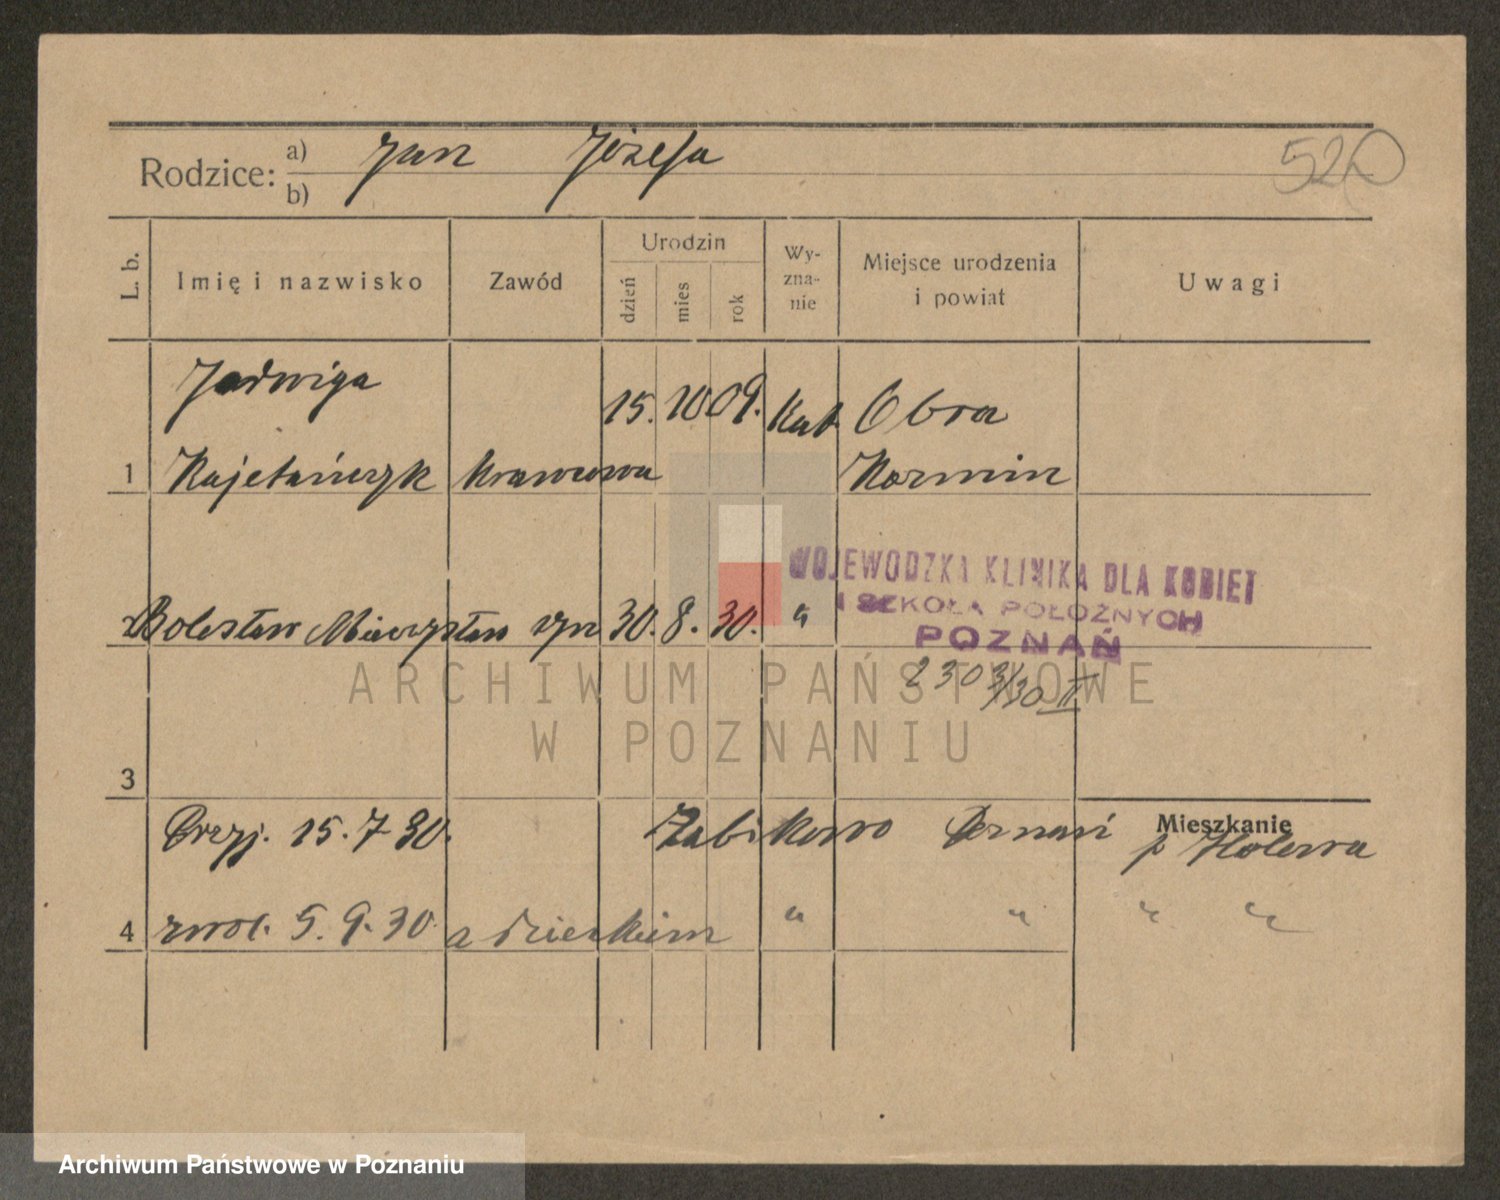 Rodzice: a) b) Jan Józefa
520
L. b.
Imię i nazwisko
Zawód
Urodzin
dzień
mies
rok
Wy-
zna-
nie
Miejsce urodzenia
i powiat
Uwagi
Jadwiga
15. 10 09. Kat. Obra
1 Kajetańczyk Krawcowa Koźmin
WOJEWODZKA KLINIKA DLA KOBIET
I SZKOŁA POŁOŻNYCH
POZNAŃ
2 Bolesław Mieczysław syn 30. 8. 30. "
230
ARCHIWUM PAŃSTWOWE
W POZNANIU
3
Mieszkanie
Przyj. 15. 7 30. Żabikowo p
4 zwol. 5. 9. 30. z dzieckiem " " " "
Archiwum Państwowe w Poznaniu